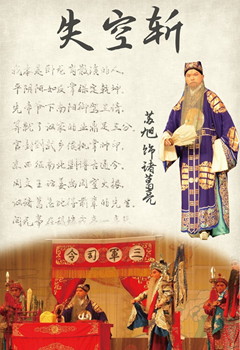 失空斩
我本是卧龙岗散淡的人,
平阴阳如反掌保定乾坤.
先帝爷下南阳御驾三请,
算就了汉家的业鼎足三分.
官封到武乡侯执掌帅印,
东西征南北剿博古通今.
周文王访姜尚周室大振,
汉诸葛怎比得前辈的先生.
闲无事在敌楼亮一
苏旭饰诸葛亮
三軍司令